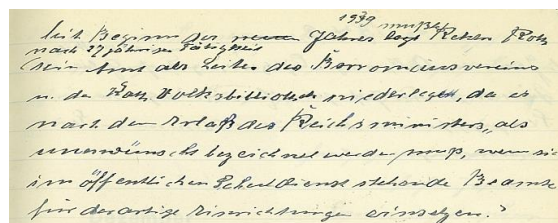 1939 mußte
Seit Beginn des neuen Jahres legt Rektor Roth
nach 27 jähriger Tätigkeit
sein Amt als Leiter des Borromäusvereins
u. der Kath. Volksbibliothek niederlegen, da es
nach dem Erlaß des Reichsministers „als
unerwünscht bezeichnet werden muß, wenn sich
im öffentlichen Schuldienst stehende Beamte
für derartige Einrichtungen einsetzen."